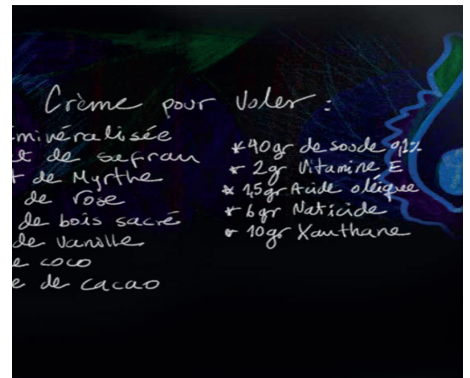 Crème pour voler :
minéralisée
de safran
de Myrrhe
de rose
de bois sacré
de vanille
coco
de cacao
* 40gr de soude 0,1%
* 2gr Vitamine E
* 1,5gr Acide oléique
* 6gr Naticide
* 10gr Xanthane